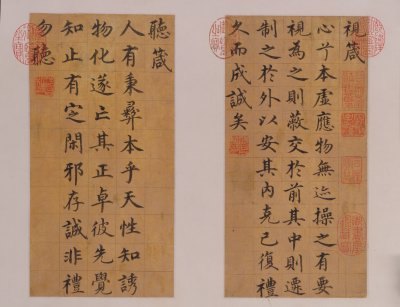 視箴
心兮本虛應物無迹操之有要
視為之則蔽交於前其中則遷
制之於外以安其內克己復禮
久而成誠矣
聽箴
人有秉彝本乎天性知誘
物化遂亡其正卓彼先覺
知止有定閑邪存誠非禮
勿聽